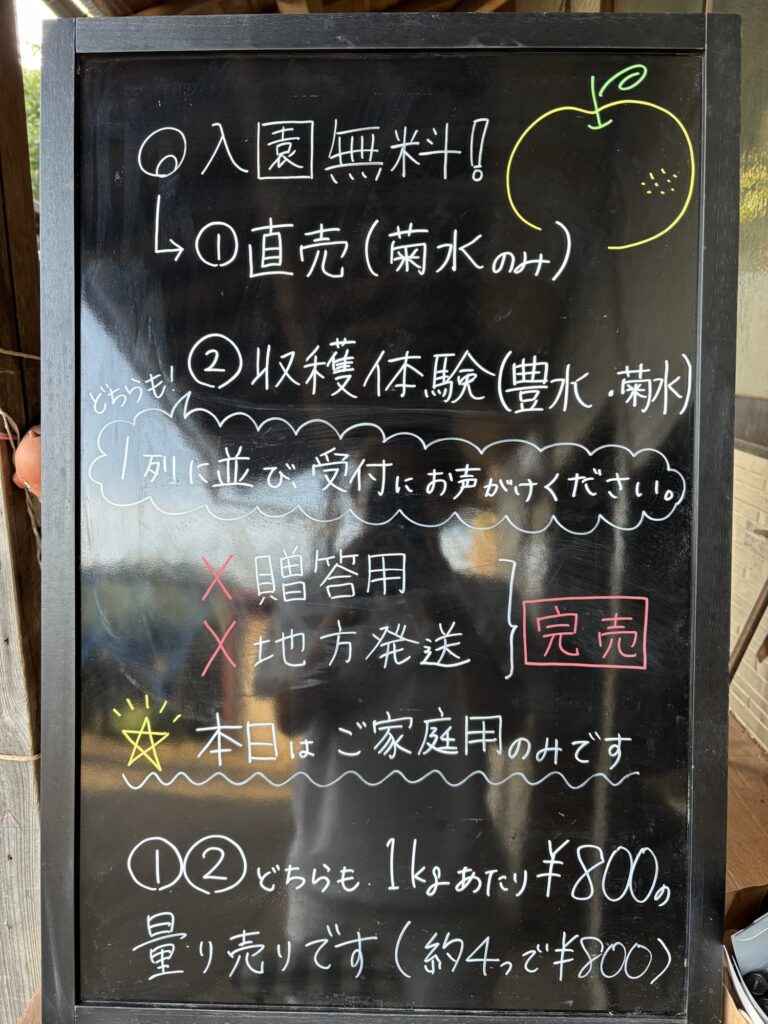 ○入園無料!
→①直売(菊水のみ)
②収穫体験(豊水・菊水)
どちらも!
1列に並び、受付にお声がけください。
×贈答用
×地方発送
完売
☆本日はご家庭用のみです
①②どちらも1kgあたり¥800の
量り売りです(約4つで¥800)